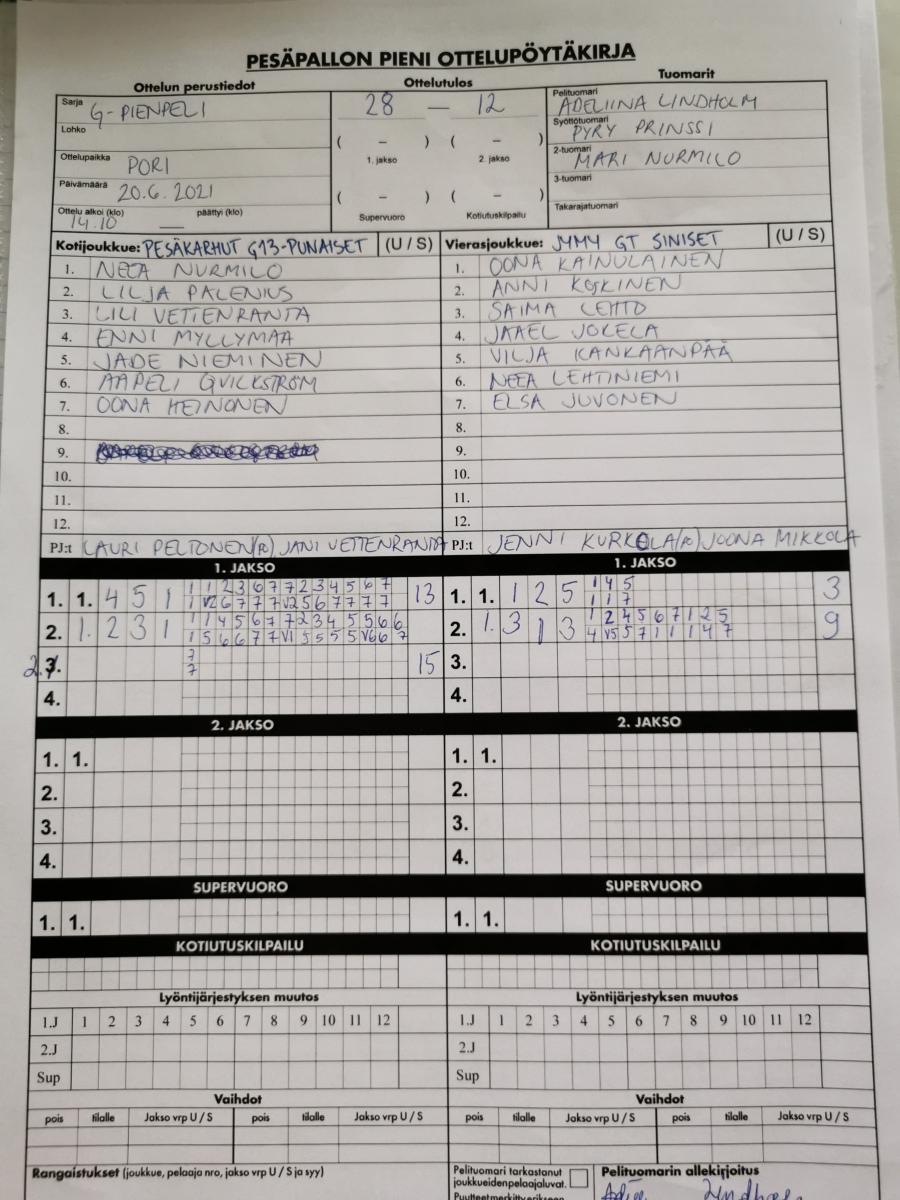 PESÄPALLON PIENI OTTELUPÖYTÄKIRJA
Ottelun perustiedot
Ottelutulos
Tuomarit
Sarja G-PIENPELI
28 — 12
Pelituomari ADELIINA LINDHOLM
Lohko
Syöttötuomari PYRY PRINSSI
( – ) ( – )
Ottelupaikka PORI
1. jakso 2. jakso
2-tuomari MARI NURMILO
Päivämäärä 20.6.2021
( – ) ( – )
3-tuomari
Ottelu alkoi (klo) 14.10 päättyi (klo) —
Supervuoro Kotiutuskilpailu
Takarajatuomari
Kotijoukkue: PESÄKARHUT G13-PUNAISET (U / S)
Vierasjoukkue: JYMY GT SINISET (U / S)
1. NEEA NURMILO
1. OONA KAINULAINEN
2. LILJA PALENIUS
2. ANNI KOSKINEN
3. LILI VETTENRANTA
3. SAIMA LEHTO
4. ENNI MYLLYMAA
4. JAAEL JOKELA
5. JADE NIEMINEN
5. VILJA KANKAANPÄÄ
6. AAPELI QVICKSTRÖM
6. NEEA LEHTINIEMI
7. OONA HEINONEN
7. ELSA JUVONEN
8.
8.
9.
9.
10.
10.
11.
11.
12.
12.
PJ:t LAURI PELTONEN(R) JANI VETTENRANTA
PJ:t JENNI KURKOLA(R) JOONA MIKKOLA
1. JAKSO
1. JAKSO
1. 1. 4 5 1 1 1 2 3 6 7 7 2 3 4 5 6 7 13
1 V2 6 7 7 7 V2 5 6 7 7 7 7
1. 1. 1 2 5 1 4 5 3
1 1 7
2. 1. 2 3 1 1 1 4 5 6 7 7 2 3 4 5 5 6 6
1 5 6 6 7 7 V1 5 5 5 5 V6 6 7
2. 1. 3 1 3 1 2 4 5 6 7 1 2 5 9
4 V5 5 7 1 1 1 4 7
3. 7 15
7
3.
4.
4.
2. JAKSO
2. JAKSO
1. 1.
1. 1.
2.
2.
3.
3.
4.
4.
SUPERVUORO
SUPERVUORO
1. 1.
1. 1.
KOTIUTUSKILPAILU
KOTIUTUSKILPAILU
Lyöntijärjestyksen muutos
Lyöntijärjestyksen muutos
1.J 1 2 3 4 5 6 7 8 9 10 11 12
1.J 1 2 3 4 5 6 7 8 9 10 11 12
2.J
2.J
Sup
Sup
Vaihdot
Vaihdot
pois tilalle Jakso vrp U / S pois tilalle Jakso vrp U / S
pois tilalle Jakso vrp U / S pois tilalle Jakso vrp U / S
Rangaistukset (joukkue, pelaaja nro, jakso vrp U / S ja syy)
Pelituomari tarkastanut
joukkueidenpelaajaluvat.
Pelituomarin allekirjoitus